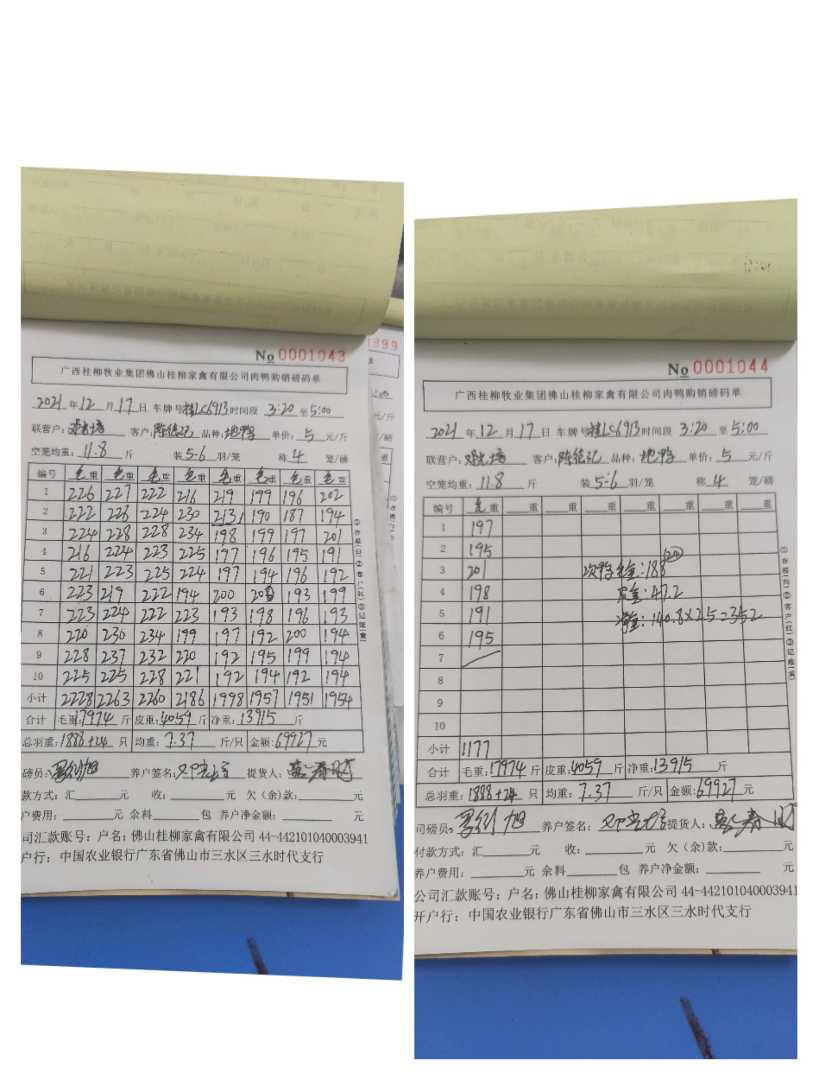 No 0001043
广西桂柳牧业集团佛山桂柳家禽有限公司肉鸭购销磅码单
2021年12月17日 车牌号桂LC6913时间段 3:20 至5:00
联营户: 客户: 品种: 地鸭 单价: 5 元/斤
空笼均重: 11.8 斤 装5-6羽/笼 称4笼/磅
编号 毛重 毛重 毛重 毛重 毛重 毛重 毛重 毛重
1 226 227 222 216 219 199 196 202
2 222 226 224 230 213 190 187 194
3 224 228 228 234 198 199 197 201
4 216 224 223 225 197 196 195 191
5 221 223 225 224 197 194 196 192
6 223 219 222 194 200 193 199
7 223 224 222 223 193 198 196 193
8 220 230 234 199 197 192 200 194
9 228 237 232 220 192 195 199 194
10 225 225 228 221 192 194 192 194
小计 2228 2263 2260 2186 1998 1957 1951 1954
合计 毛重:17974斤 皮重:4059斤 净重:13915斤
总羽重:1888+24只 均重: 7.37 斤/只 金额:69927元
磅员: 养户签名: 提货人:
款方式: 汇 元 收: 元 欠(余)款: 元
户费用: 元 余料 包 养户净金额: 元
司汇款账号: 户名: 佛山桂柳家禽有限公司 44-442101040003941
户行: 中国农业银行广东省佛山市三水区三水时代支行
No 0001044
广西桂柳牧业集团佛山桂柳家禽有限公司肉鸭购销磅码单
2021年12月17日 车牌号桂LC6913时间段 3:20 至5:00
联营户: 客户: 品种: 地鸭 单价: 5 元/斤
空笼均重: 11.8 斤 装5-6羽/笼 称4笼/磅
编号 毛重 重 重 重 重 重 重 重
1 197
2 195
3 201 次鸭毛重:188
4 198 皮重:47.2
5 191 净重:140.8×2.5=352
6 195
7
8
9
10
小计 1177
合计 毛重:17974斤 皮重:4059斤 净重:13915斤
总羽重:1888+24只 均重: 7.37 斤/只 金额:69927元
司磅员: 养户签名: 提货人:
付款方式: 汇 元 收: 元 欠(余)款: 元
养户费用: 元 余料 包 养户净金额: 元
公司汇款账号: 户名: 佛山桂柳家禽有限公司 44-442101040003941
开户行: 中国农业银行广东省佛山市三水区三水时代支行